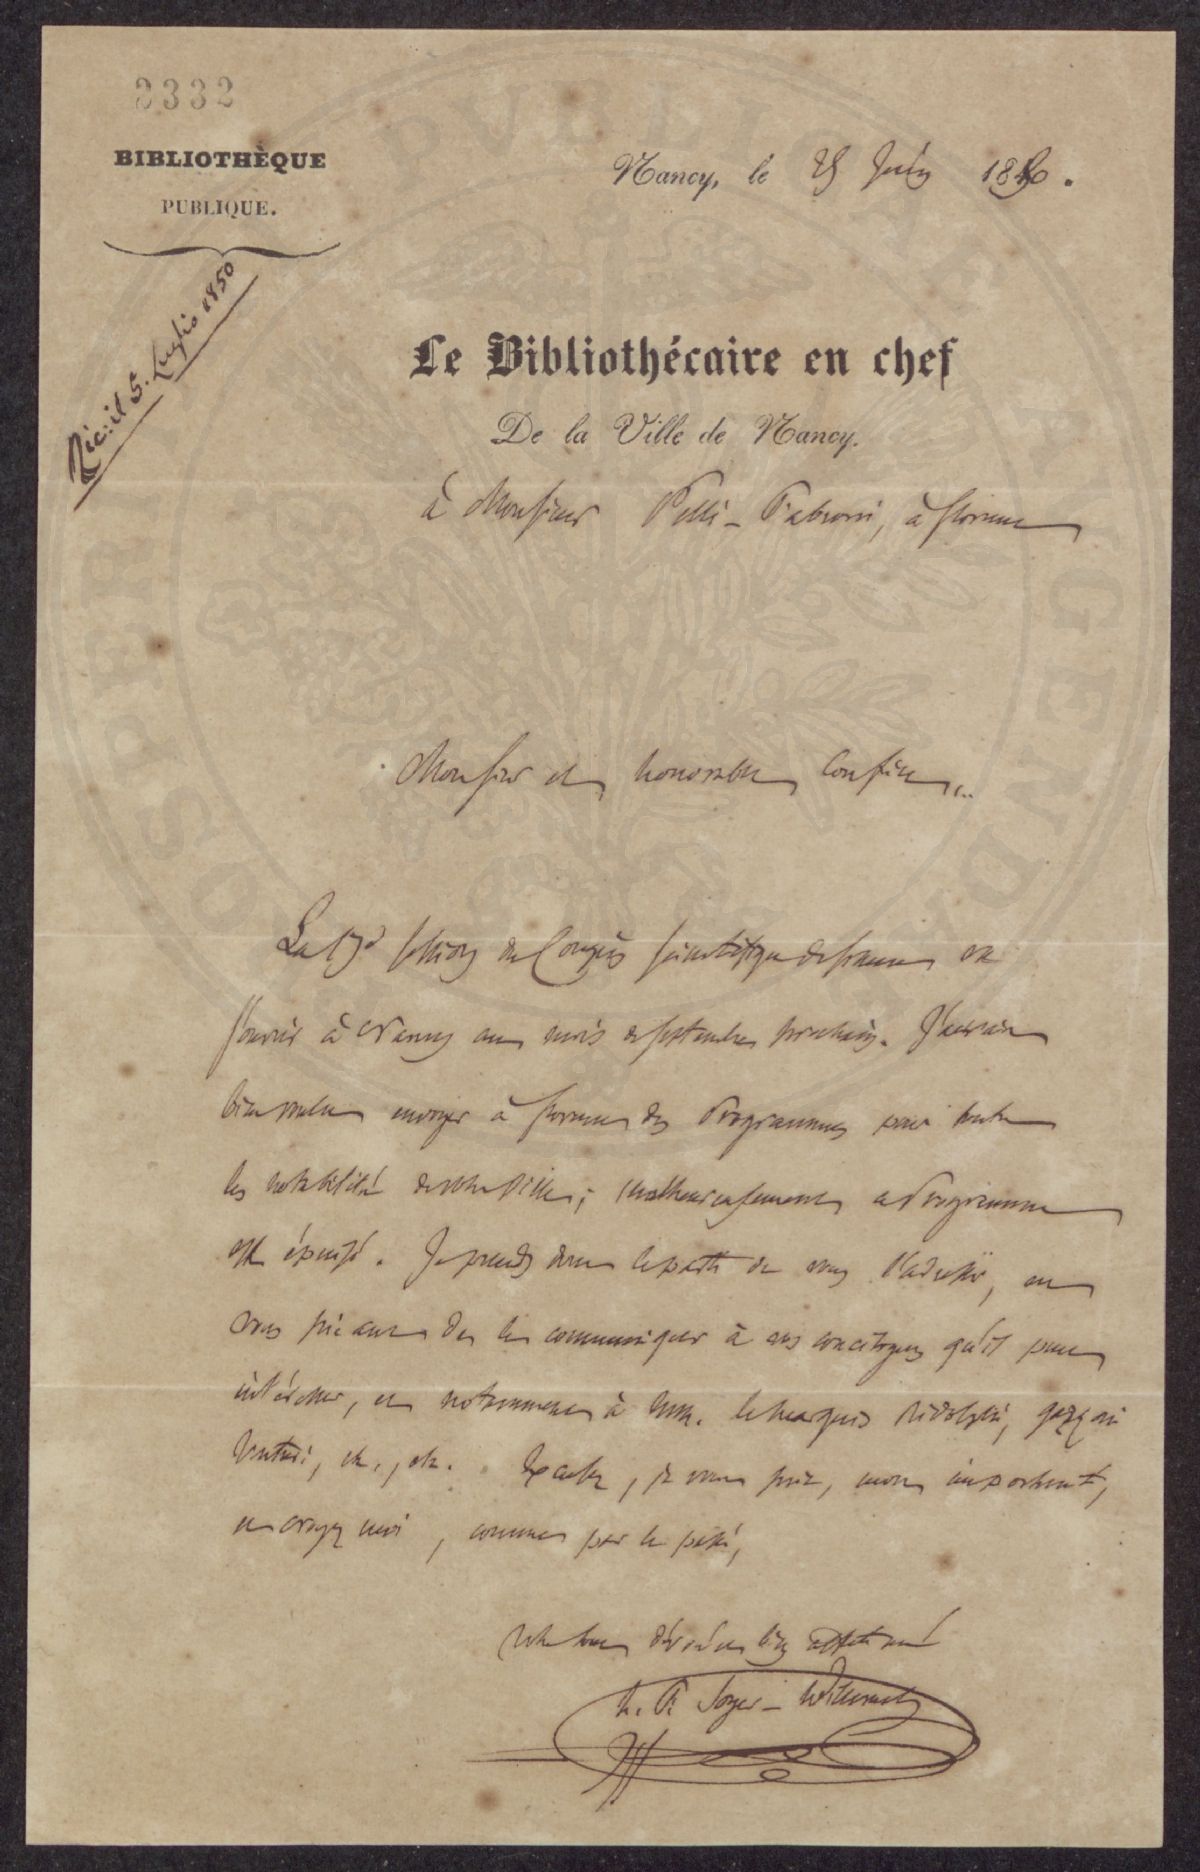 2332
BIBLIOTHÈQUE
PUBLIQUE.
Nancy, le 25 Juin 1850.
Ric: il 5. Luglio 1850
Le Bibliothécaire en chef
De la Ville de Nancy.
à Monsieur Pelli-Fabroni, à florence
Monsieur et honorable Confrère,
La 17e session du Congrès scientifique de france va
s'ouvrir à Nancy au mois de septembre prochain. J'aurais
bien voulu envoyer à florence des Programmes pour toutes
les notabilités de votre Ville; malheureusement ce Programme
est épuisé. Je prends donc le parti de vous l'adresser, en
vous priant de le communiquer à vos concitoyens qu'il peut
intéresser, et notamment à MM. le marquis Ridolphi, gazzeri
etc., etc. Excusez, je vous prie, mon importunité,
et croyez moi, comme par le passé,
votre tout dévoué et bien affectionné
h. F. Soyer-Willemet
PROSPERITATI PUBLICAE AUGENDAE